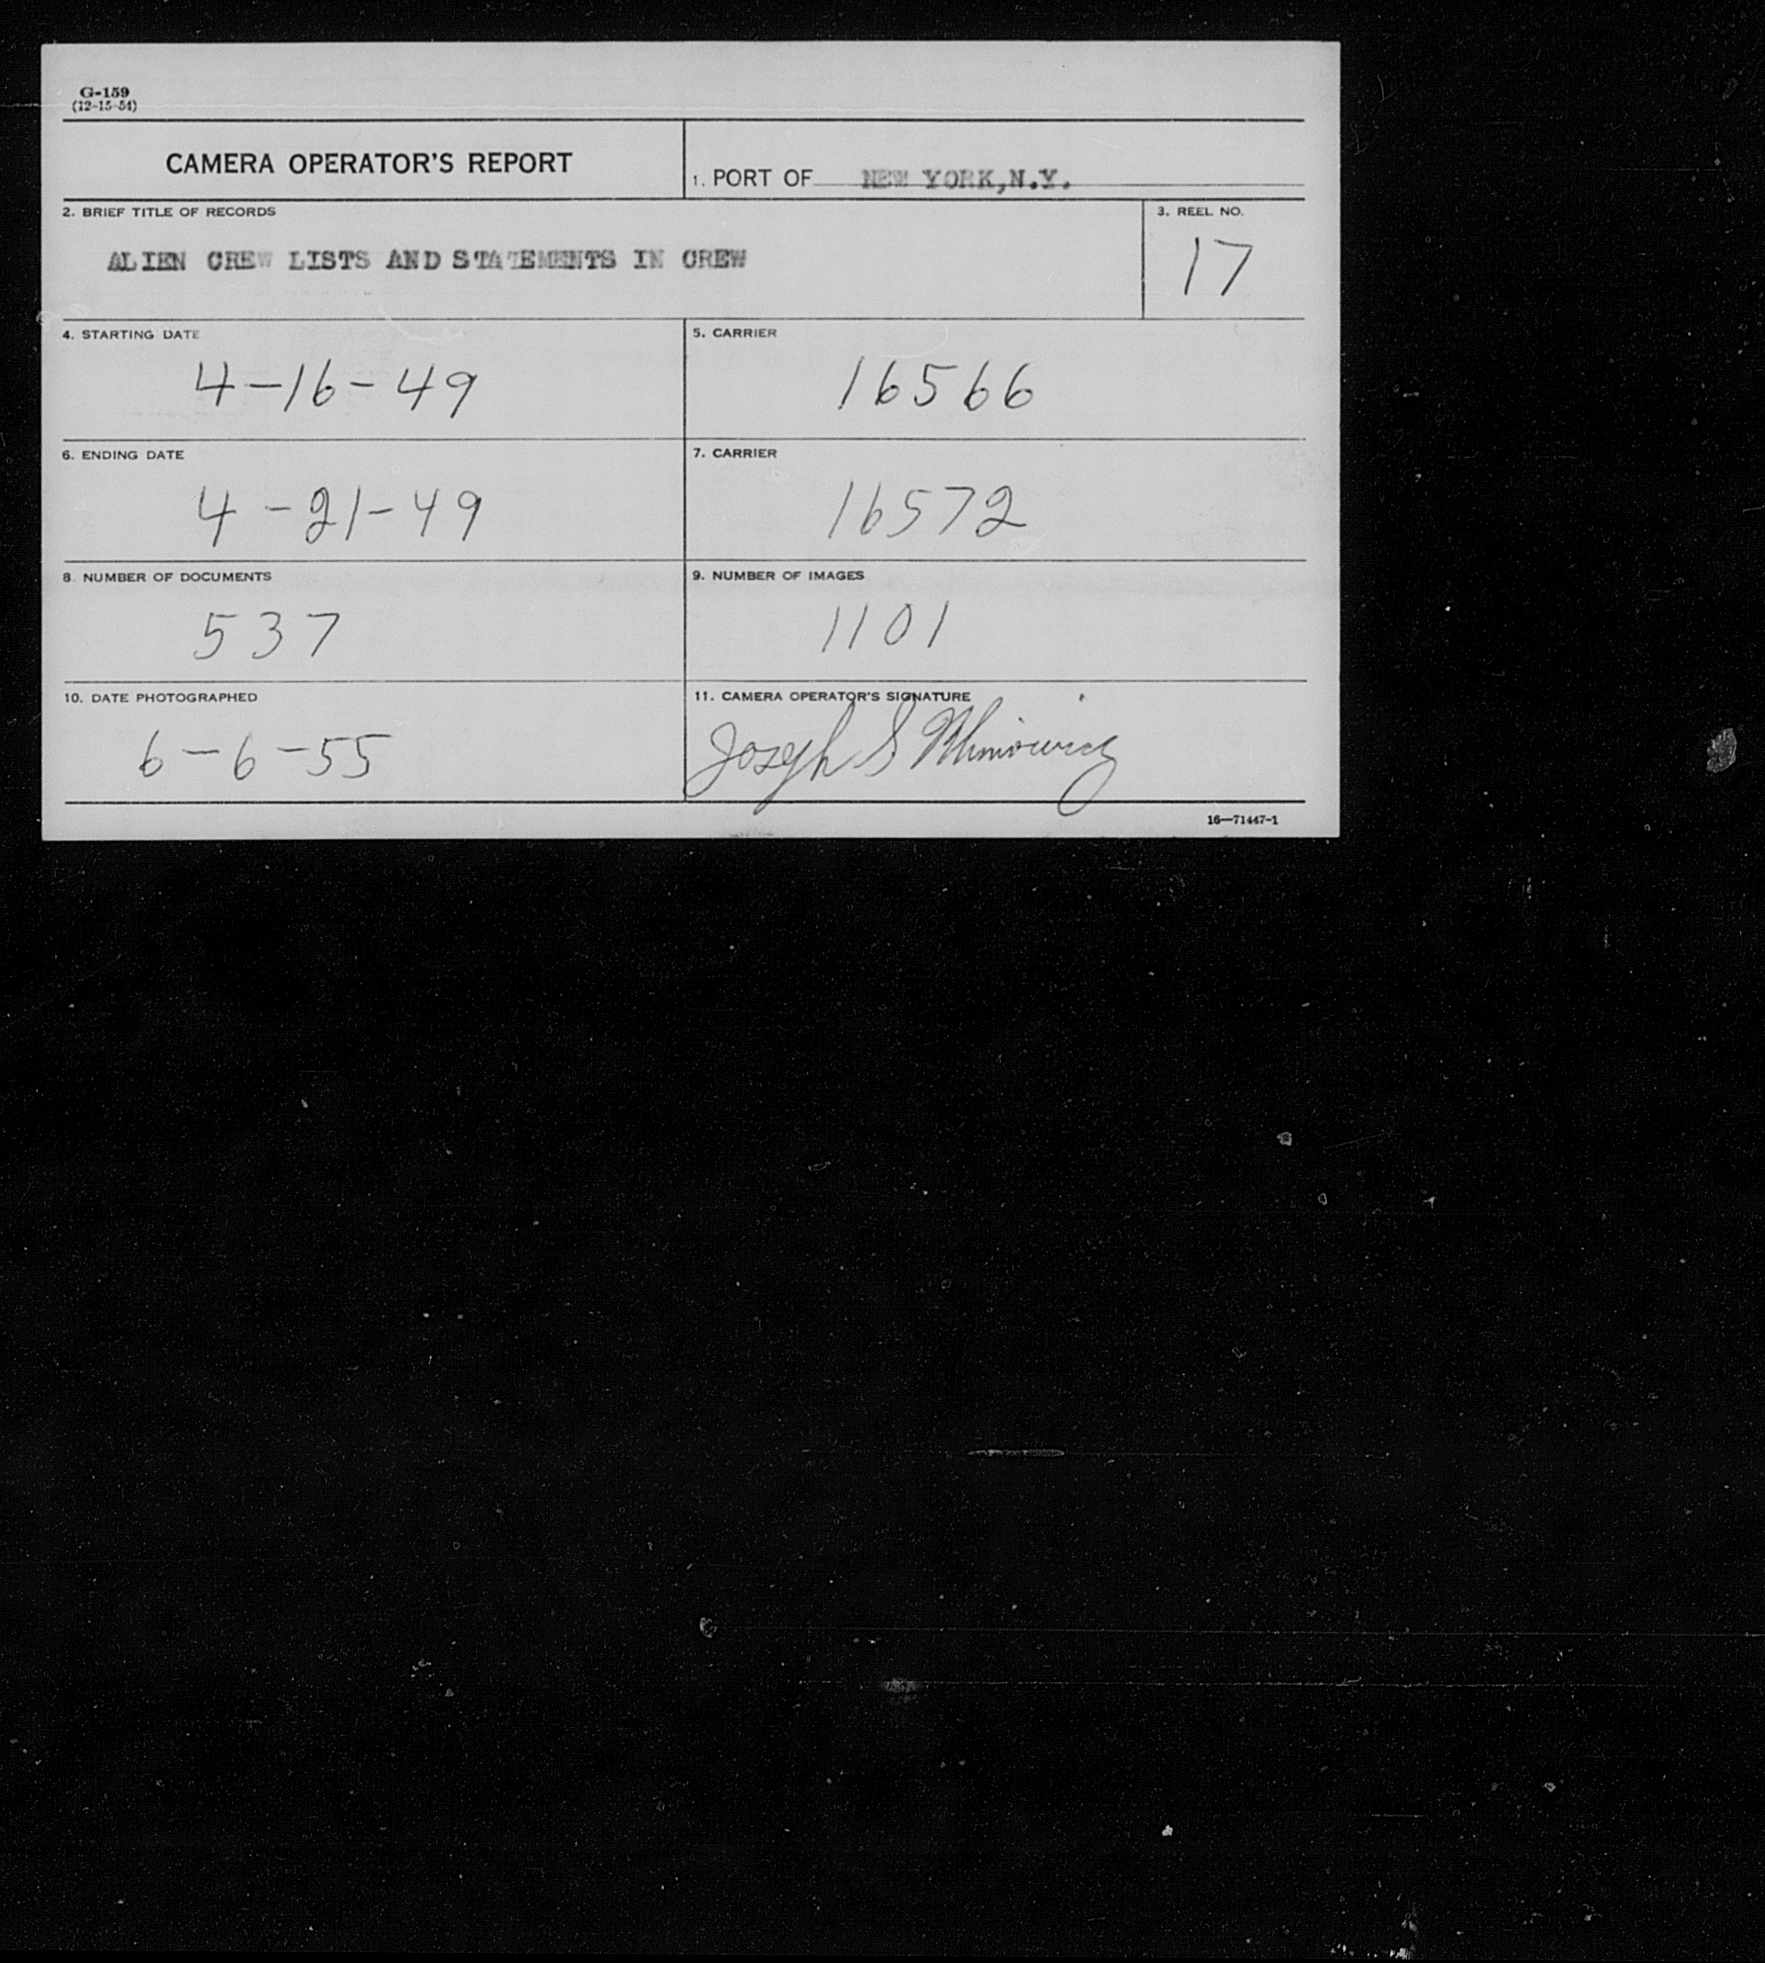 G-159
(12-15-54)
CAMERA OPERATOR'S REPORT
1. PORT OF NEW YORK,N.Y.
2. BRIEF TITLE OF RECORDS
ALIEN CREW LISTS AND STATEMENTS IN CREW
3. REEL NO.
17
4. STARTING DATE
4-16-49
5. CARRIER
16566
6. ENDING DATE
4-21-49
7. CARRIER
16572
8. NUMBER OF DOCUMENTS
537
9. NUMBER OF IMAGES
1101
10. DATE PHOTOGRAPHED
6-6-55
11. CAMERA OPERATOR'S SIGNATURE
Joseph S
16—71447-1